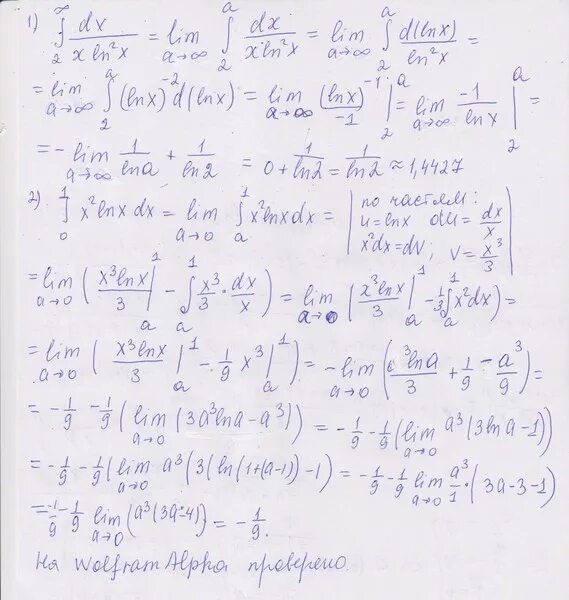 1) ∫₂^∞ dx/(x ln²x) = lim_{a→∞} ∫₂^a dx/(x ln²x) = lim_{a→∞} ∫₂^a d(lnx)/ln²x =
= lim_{a→∞} ∫₂^a (lnx)⁻² d(lnx) = lim_{a→∞} (lnx)⁻¹/-1 |₂^a = lim_{a→∞} -1/lnx |₂^a =
= - lim_{a→∞} 1/lna + 1/ln2 = 0 + 1/ln2 = 1/ln2 ≈ 1,4427
2) ∫₀^1 x² lnx dx = lim_{a→0} ∫ₐ^1 x² lnx dx = | по частям: u = lnx du = dx/x x²dx = dv, v = x³/3 |
= lim_{a→0} ( x³lnx/3 |ₐ^1 - ∫ₐ^1 x³/3 · dx/x ) = lim_{a→0} ( x³lnx/3 |ₐ^1 - 1/3 ∫ₐ^1 x²dx ) =
= lim_{a→0} ( x³lnx/3 |ₐ^1 - 1/9 x³ |ₐ^1 ) = - lim_{a→0} ( ³lna/3 + 1/9 - a³/9 ) =
= -1/9 - 1/9 ( lim_{a→0} (3a³lna - a³) ) = -1/9 - 1/9 ( lim_{a→0} a³(3lna - 1) )
= -1/9 - 1/9 ( lim_{a→0} a³(3(ln(1+(a-1)) - 1) = -1/9 - 1/9 lim_{a→0} a³/1 · (3a - 3 - 1)
= -1/9 - 1/9 lim_{a→0} (a³(3a - 4)) = -1/9.
На WolframAlpha проверено.